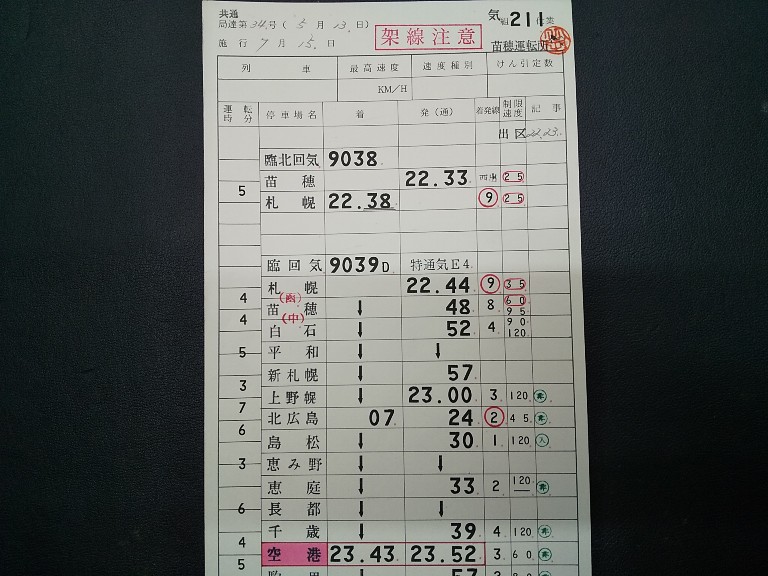 共通
局達第34号(5月13日)
施行 7月15日
架線注意
気 組 211 仕業
苗穂運転所
列 車 最高速度 速度種別 けん引定数
KM/H
運転時分 停車場名 着 発(通) 着発線 制限速度 記事
出区 22.23.
臨北回気 9038
苗穂 22.33 25
5
札幌 22.38 9 25
臨回気 9039D 特通気E4
札幌 22.44 9 35
4 (函)
苗穂 ↓ 48 8 60 95
4 (中)
白石 ↓ 52 4 90 120
平和 ↓ ↓
5
新札幌 ↓ 57
3
上野幌 ↓ 23.00 3 120
7
北広島 07 24 2 45
6
島松 ↓ 30 1 120 入
恵み野 ↓ ↓
3
恵庭 ↓ 33 2 120
長都 ↓ ↓
6
千歳 ↓ 39 4 120
4
空港 23.43 23.52 3 60
5
57